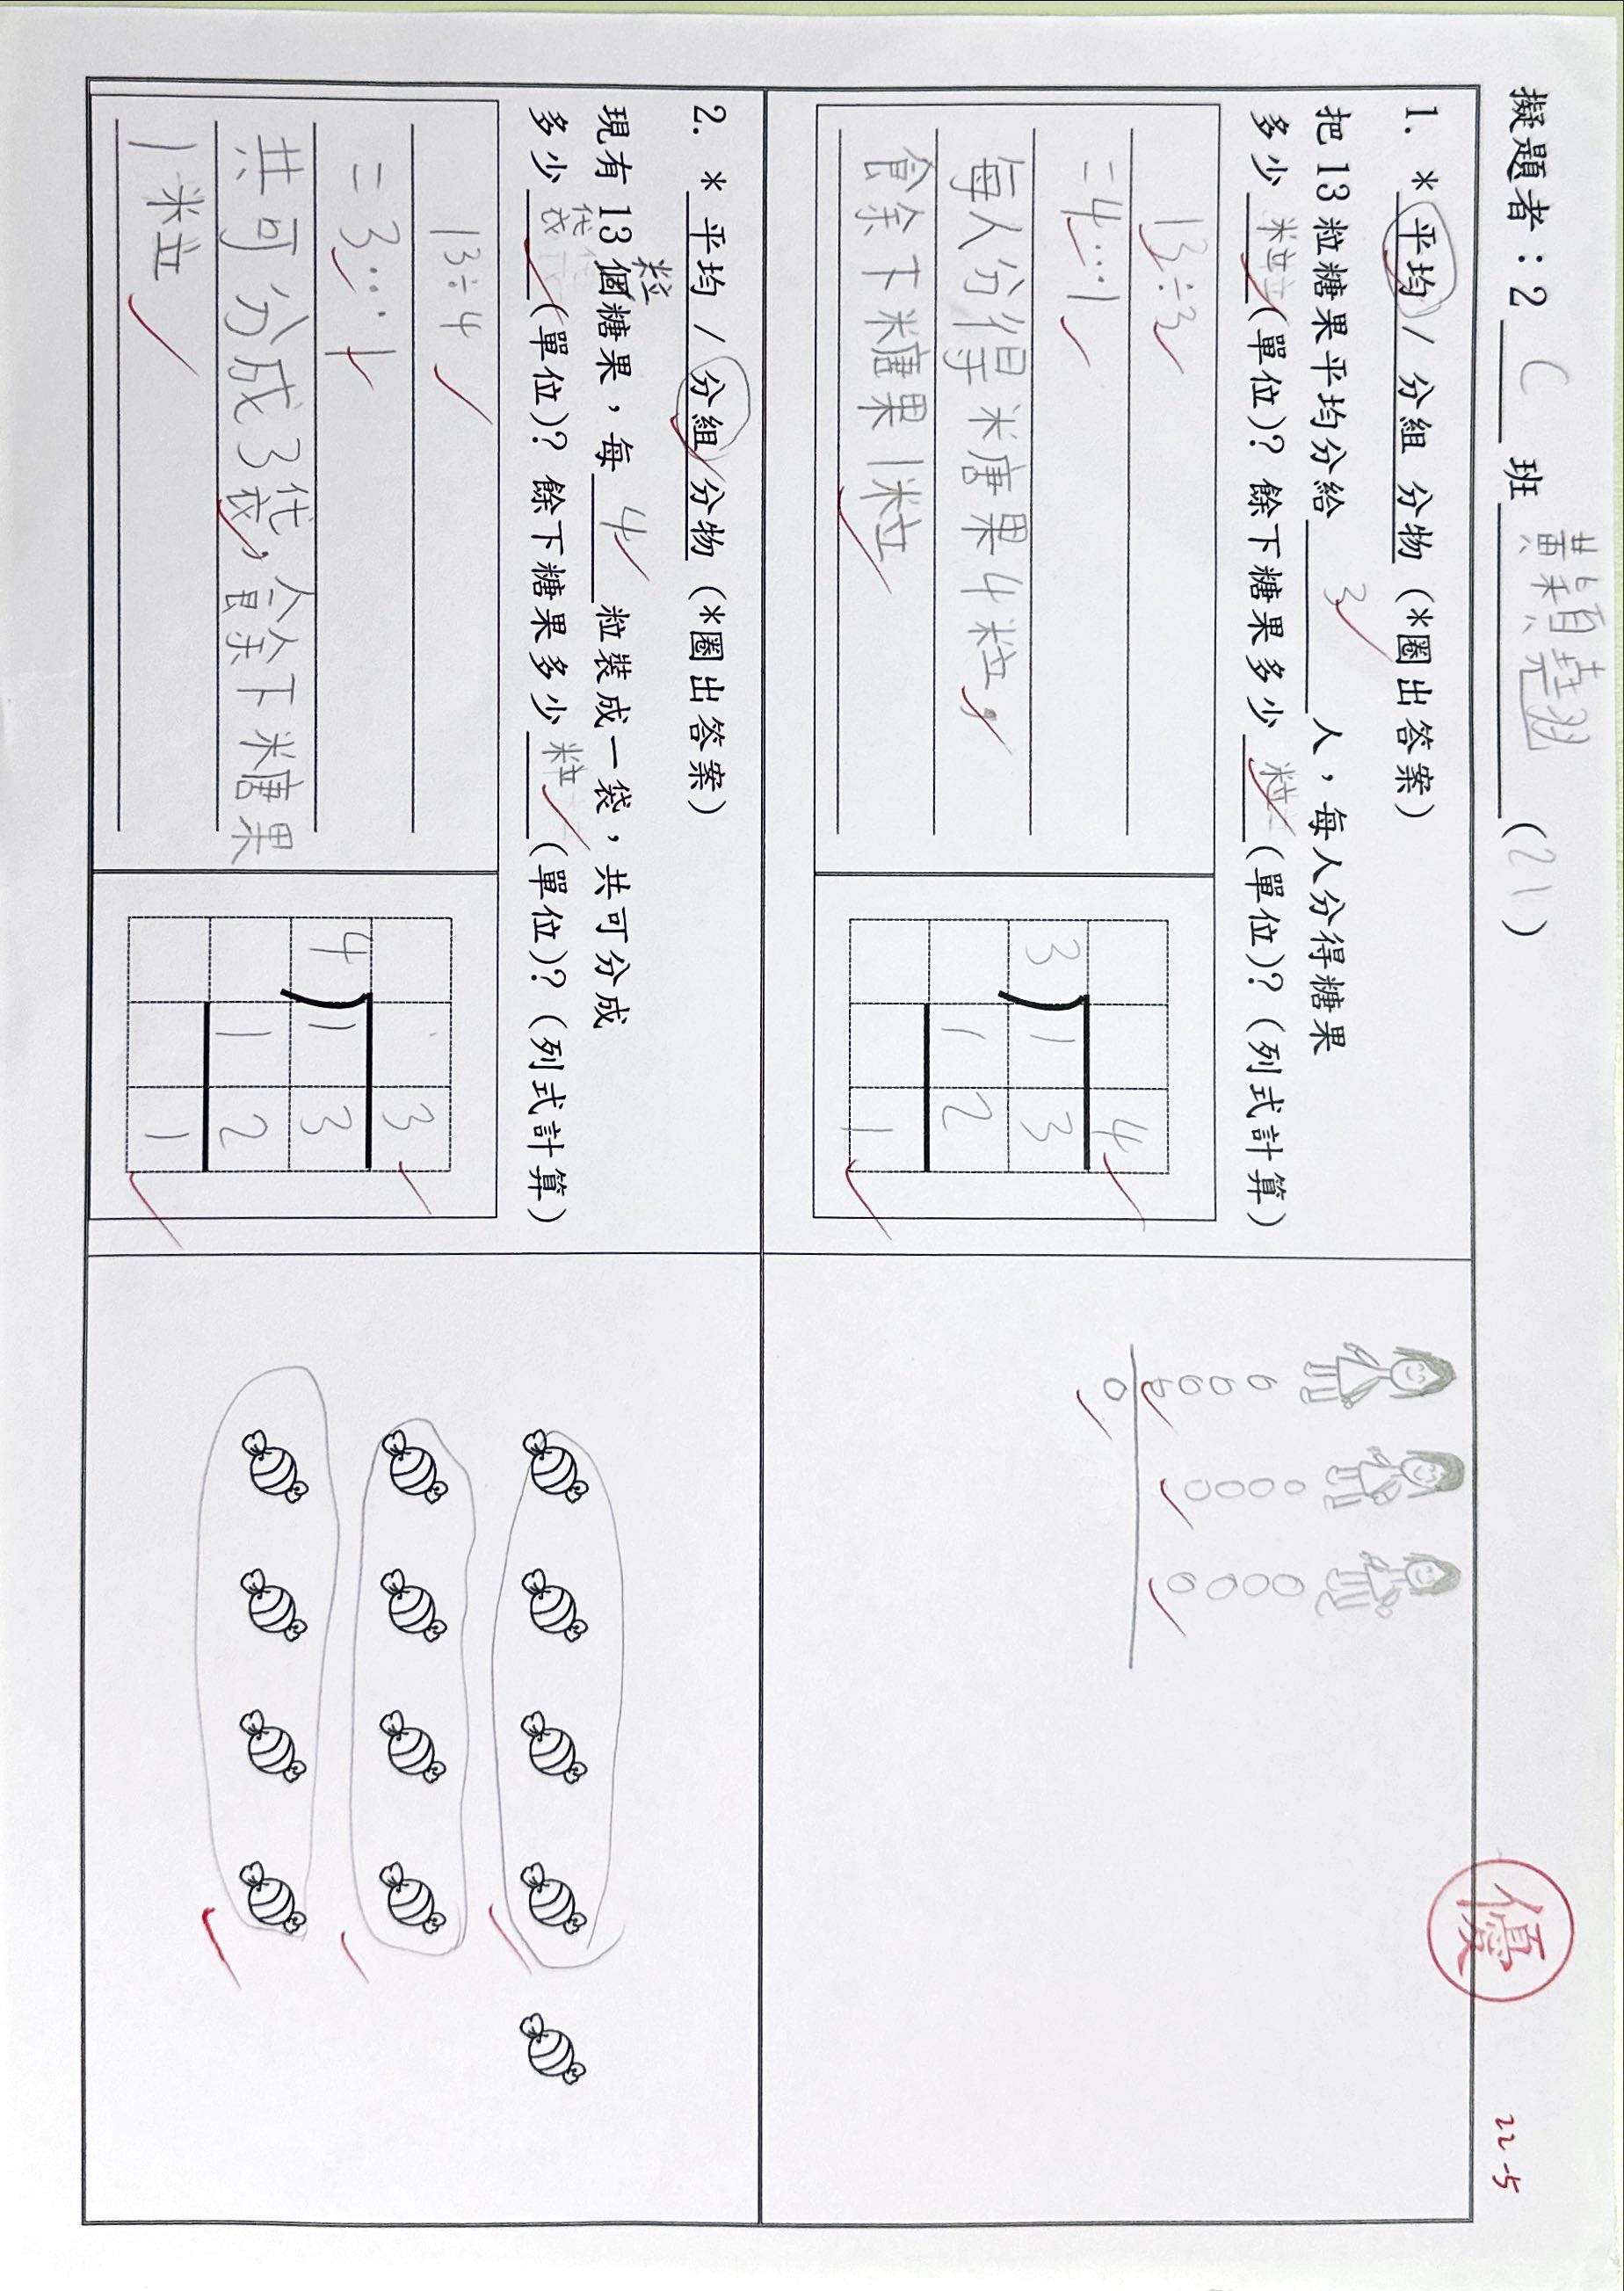 擬題者：2 C 班 黃穎堯 (21)
優
22-5
1. * 平均 / 分組 分物 (*圈出答案)
把 13 粒糖果平均分給 3 人，每人分得糖果
多少 粒 (單位)？餘下糖果多少 粒 (單位)？(列式計算)
13÷3
=4…1
每人分得糖果4粒，
餘下糖果1粒
4
3 1 3
1 2
1
2. * 平均 / 分組 分物 (*圈出答案)
粒
現有 13 個糖果，每 4 粒裝成一袋，共可分成
多少 袋 (單位)？餘下糖果多少 粒 (單位)？(列式計算)
13÷4
=3…1
共可分成3袋，餘下糖果
1粒
3
4 1 3
1 2
1